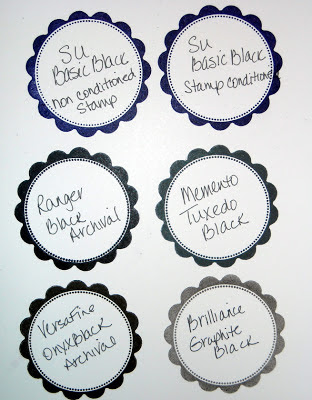 SU
Basic Black
non conditioned
Stamp
SU
Basic Black
Stamp conditioned
Ranger
Black
Archival
Memento
Tuxedo
Black
Versafine
OnyxBlack
Archival
Brilliance
Graphite
Black